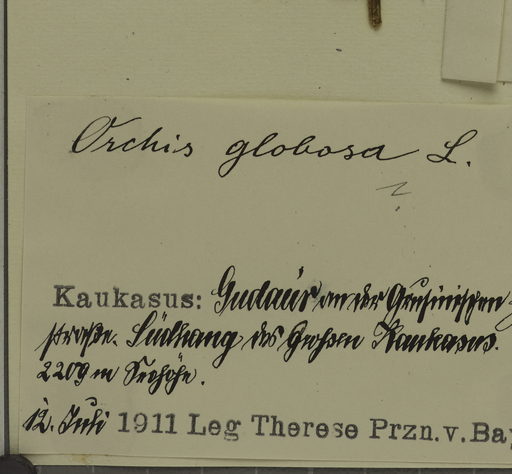 Orchis globosa L.
?
Kaukasus: Gudaur an der Grusinischen
straße. Südhang des Großen Kaukasus.
2209 m Seehöhe.
12. Juli 1911 Leg Therese Przn. v. Bay